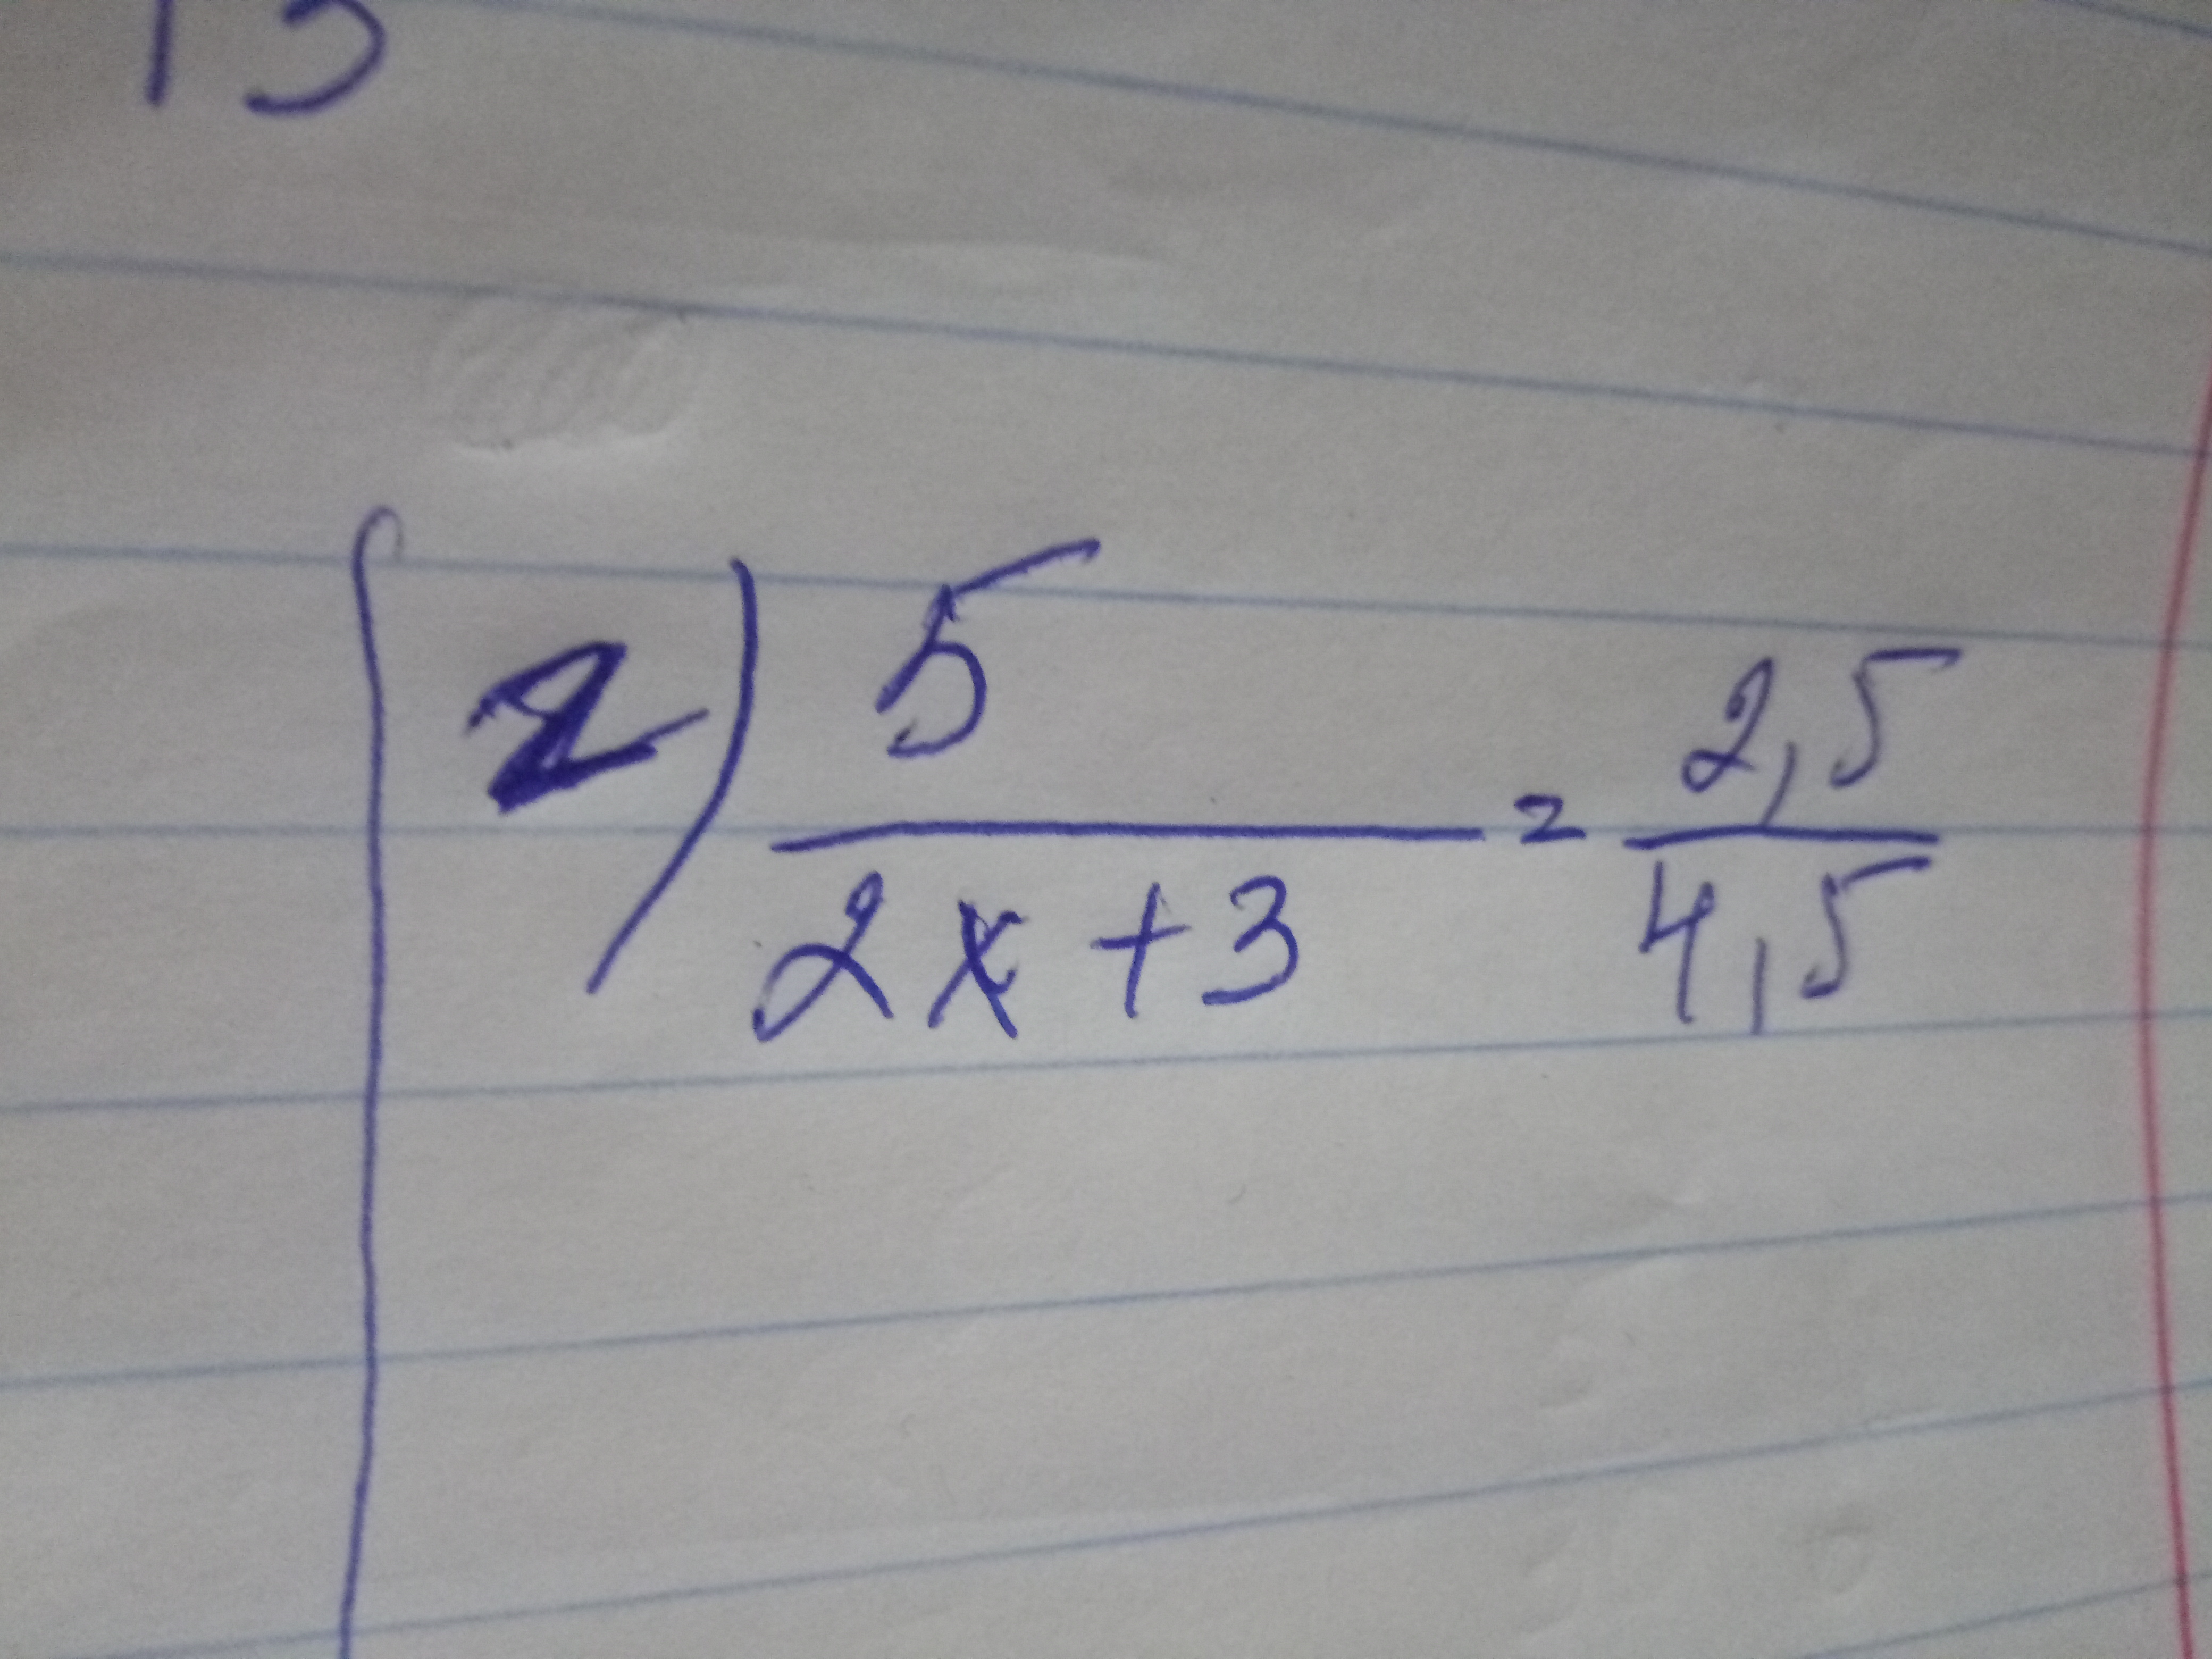 2) 5/(2x+3) = 2,5/4,5